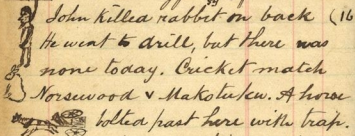 John killed rabbit on back (16
He went to drill, but there was
none today. Cricket match
Norsewood v Makotuku. A horse
bolted past here with trap.